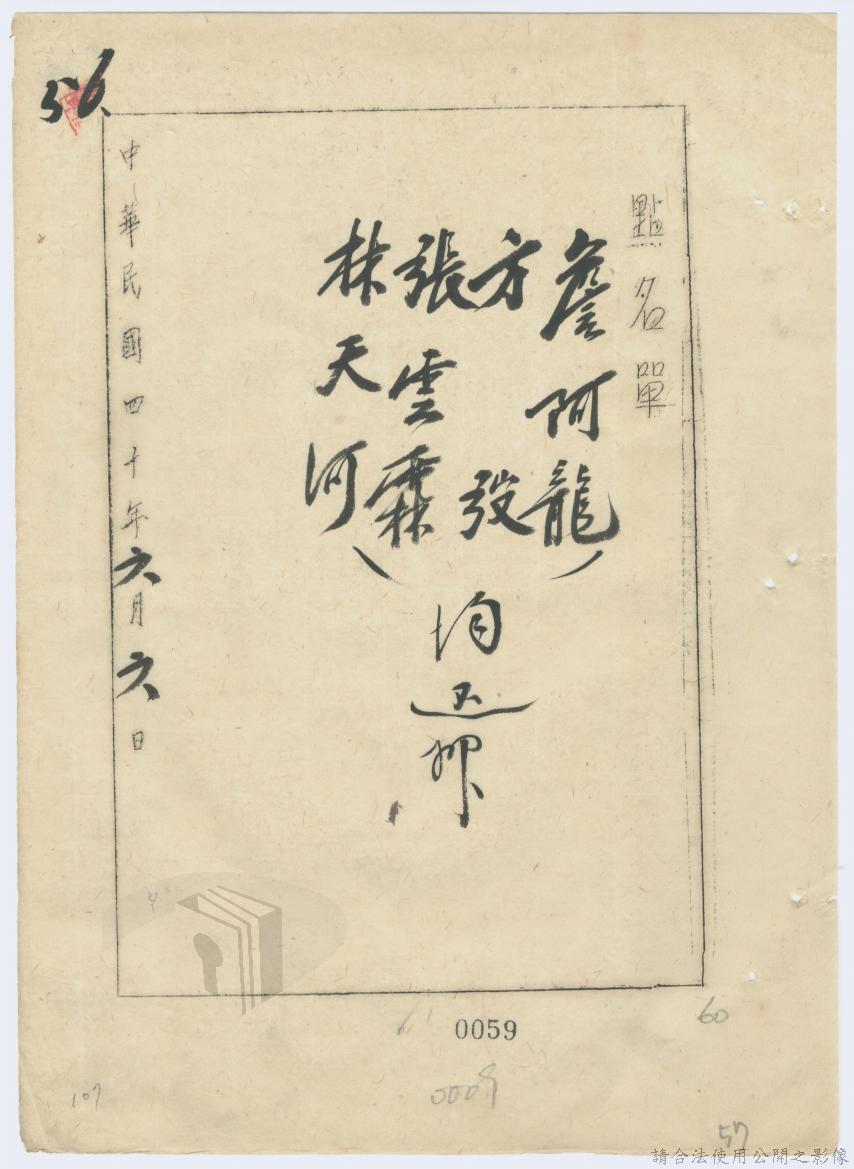 56
點名單
詹阿龍
方發
張雲霖
林天河
均還押
中華民國四十年六月六日
0059
60
107
57
請合法使用公開之影像